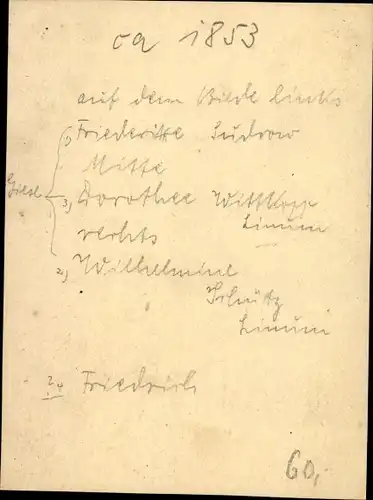 ca 1853
auf dem Bilde links
1) Friederike Sudrow
Mitte
3) Dorothee Wittkopp
Linum
rechts
2) Wilhelmine
Schütz
Linum
Friedrich
60,-